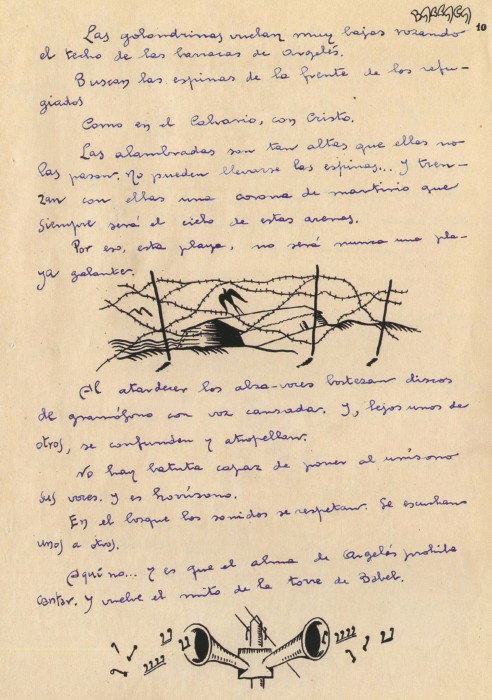 BARRACA
10
Las golondrinas vuelan muy bajas rozando
el techo de las barracas de Argelés.
Buscan las espinas de la frente de los refu-
giados
Como en el Calvario, con Cristo.
Las alambradas son tan altas que ellas no
las pasan. No pueden llevarse las espinas... Y tren-
zan con ellas una corona de martirio que
siempre será el cielo de estas arenas.
Por eso, esta playa, no será nunca una pla-
ya galante.
Al atardecer los alza-voces bostezan discos
de gramófono con voz cansada. Y, lejos unos de
otros, se confunden y atropellan.
No hay batuta capaz de poner al unísono
sus voces. Y es horrísono.
En el bosque los sonidos se respetan. Se escuchan
unos a otros.
Aquí no... Y es que el alma de Argelés prohibe
cantar. Y vuelve el mito de la torre de Babel.